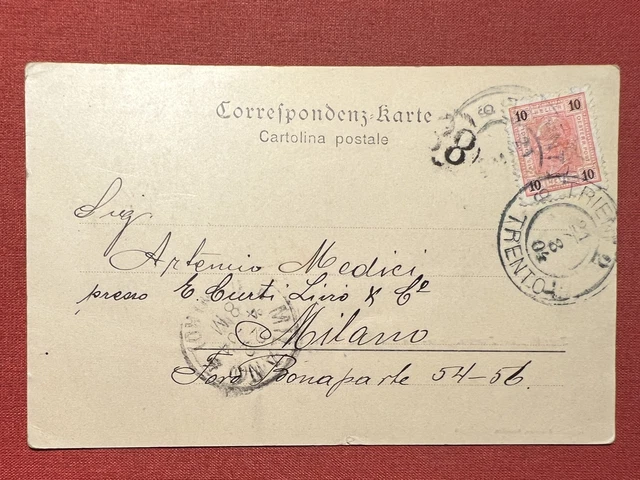 Correspondenz-Karte
Cartolina postale
10 10
10 10
TRIENT
TRENTO
21
8
04
Sig
Artemio Medici
presso E. Curti Livio & Cº
Milano
Foro Bonaparte 54-56.
MILANO